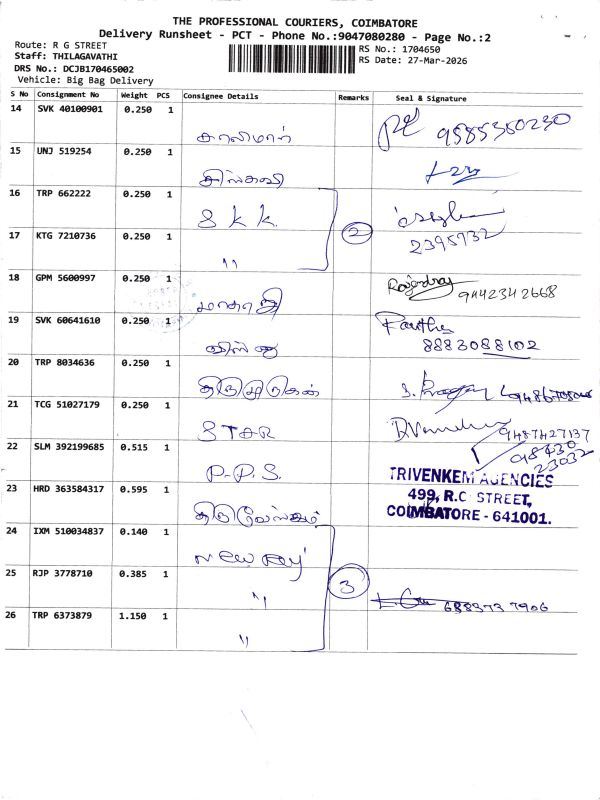 THE PROFESSIONAL COURIERS, COIMBATORE
Delivery Runsheet - PCT - Phone No.:9047080280 - Page No.:2
Route: R G STREET
Staff: THILAGAVATHI
DRS No.: DCJB170465002
Vehicle: Big Bag Delivery
RS No.: 1704650
RS Date: 27-Mar-2026
S No Consignment No Weight PCS Consignee Details Remarks Seal & Signature
14 SVK 40100901 0.250 1 9585350230
15 UNJ 519254 0.250 1
16 TRP 662222 0.250 1 S K K 2
17 KTG 7210736 0.250 1 " 2395732
18 GPM 5600997 0.250 1 Rajendraj 9442342668
19 SVK 60641610 0.250 1 8883088102
20 TRP 8034636 0.250 1 திருமுருகன்
21 TCG 51027179 0.250 1 STAR 9487427137
22 SLM 392199685 0.515 1 P.P.S. 98430 23032
TRIVENKEM AGENCIES
499, R.C STREET,
COIMBATORE - 641001.
23 HRD 363584317 0.595 1
24 IXM 510034837 0.140 1 New Ray
25 RJP 3778710 0.385 1 " 3 6883737906
26 TRP 6373879 1.150 1 "